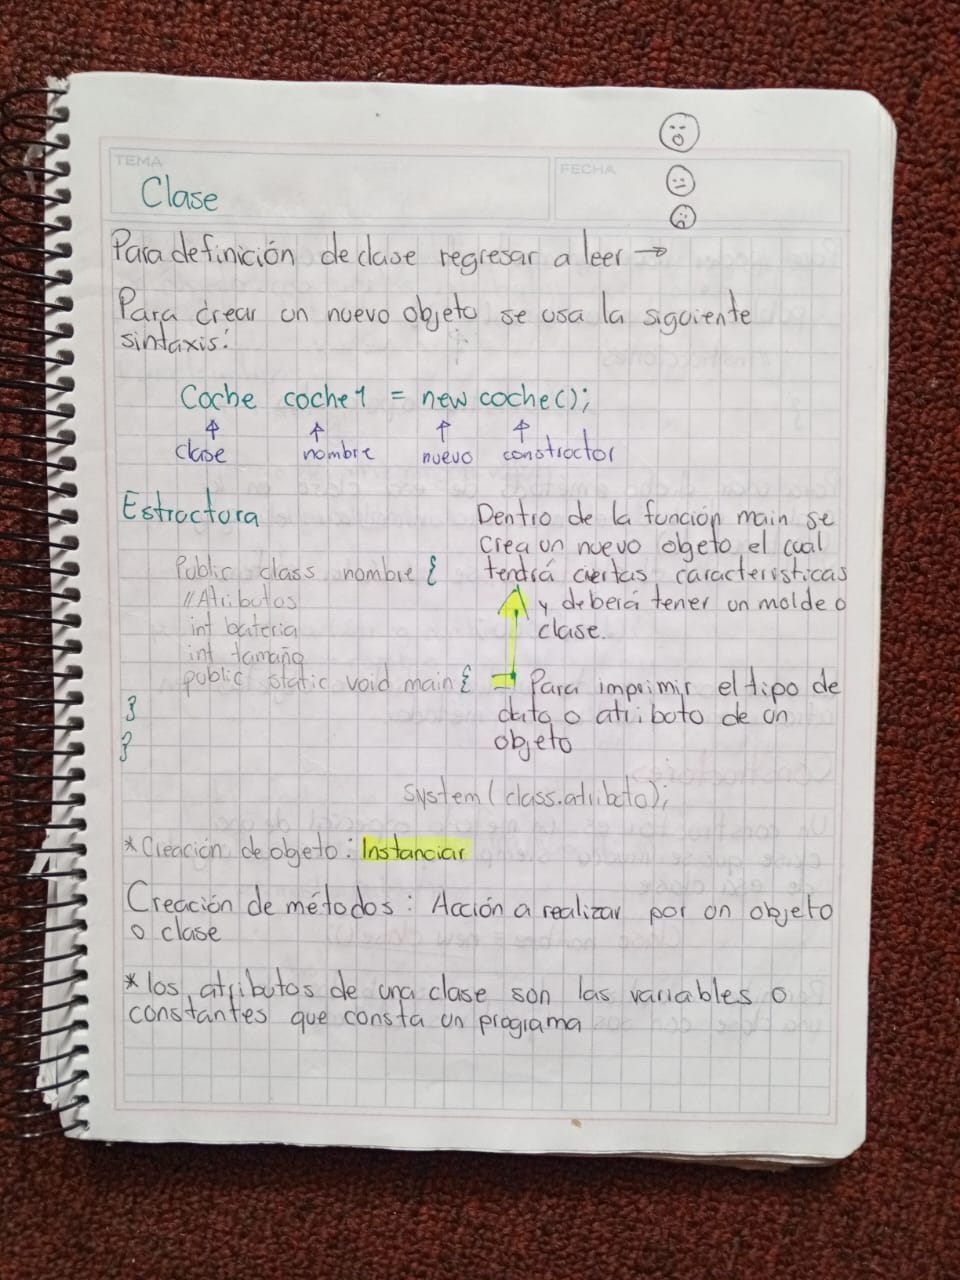 TEMA
FECHA
Clase
Para definición de clase regresar a leer →
Para crear un nuevo objeto se usa la siguiente
sintaxis:
Coche coche1 = new coche();
clase nombre nuevo constructor
Estructura
Public class nombre {
//Atributos
int bateria
int tamaño
public static void main {
}
}
Dentro de la función main se
crea un nuevo objeto el cual
tendrá ciertas características
y deberá tener un molde o
clase.
– Para imprimir el tipo de
dato o atributo de un
objeto
system(class.atributo);
*Creación de objeto: Instanciar
Creación de métodos: Acción a realizar por un objeto
o clase
*los atributos de una clase son las variables o
constantes que consta un programa